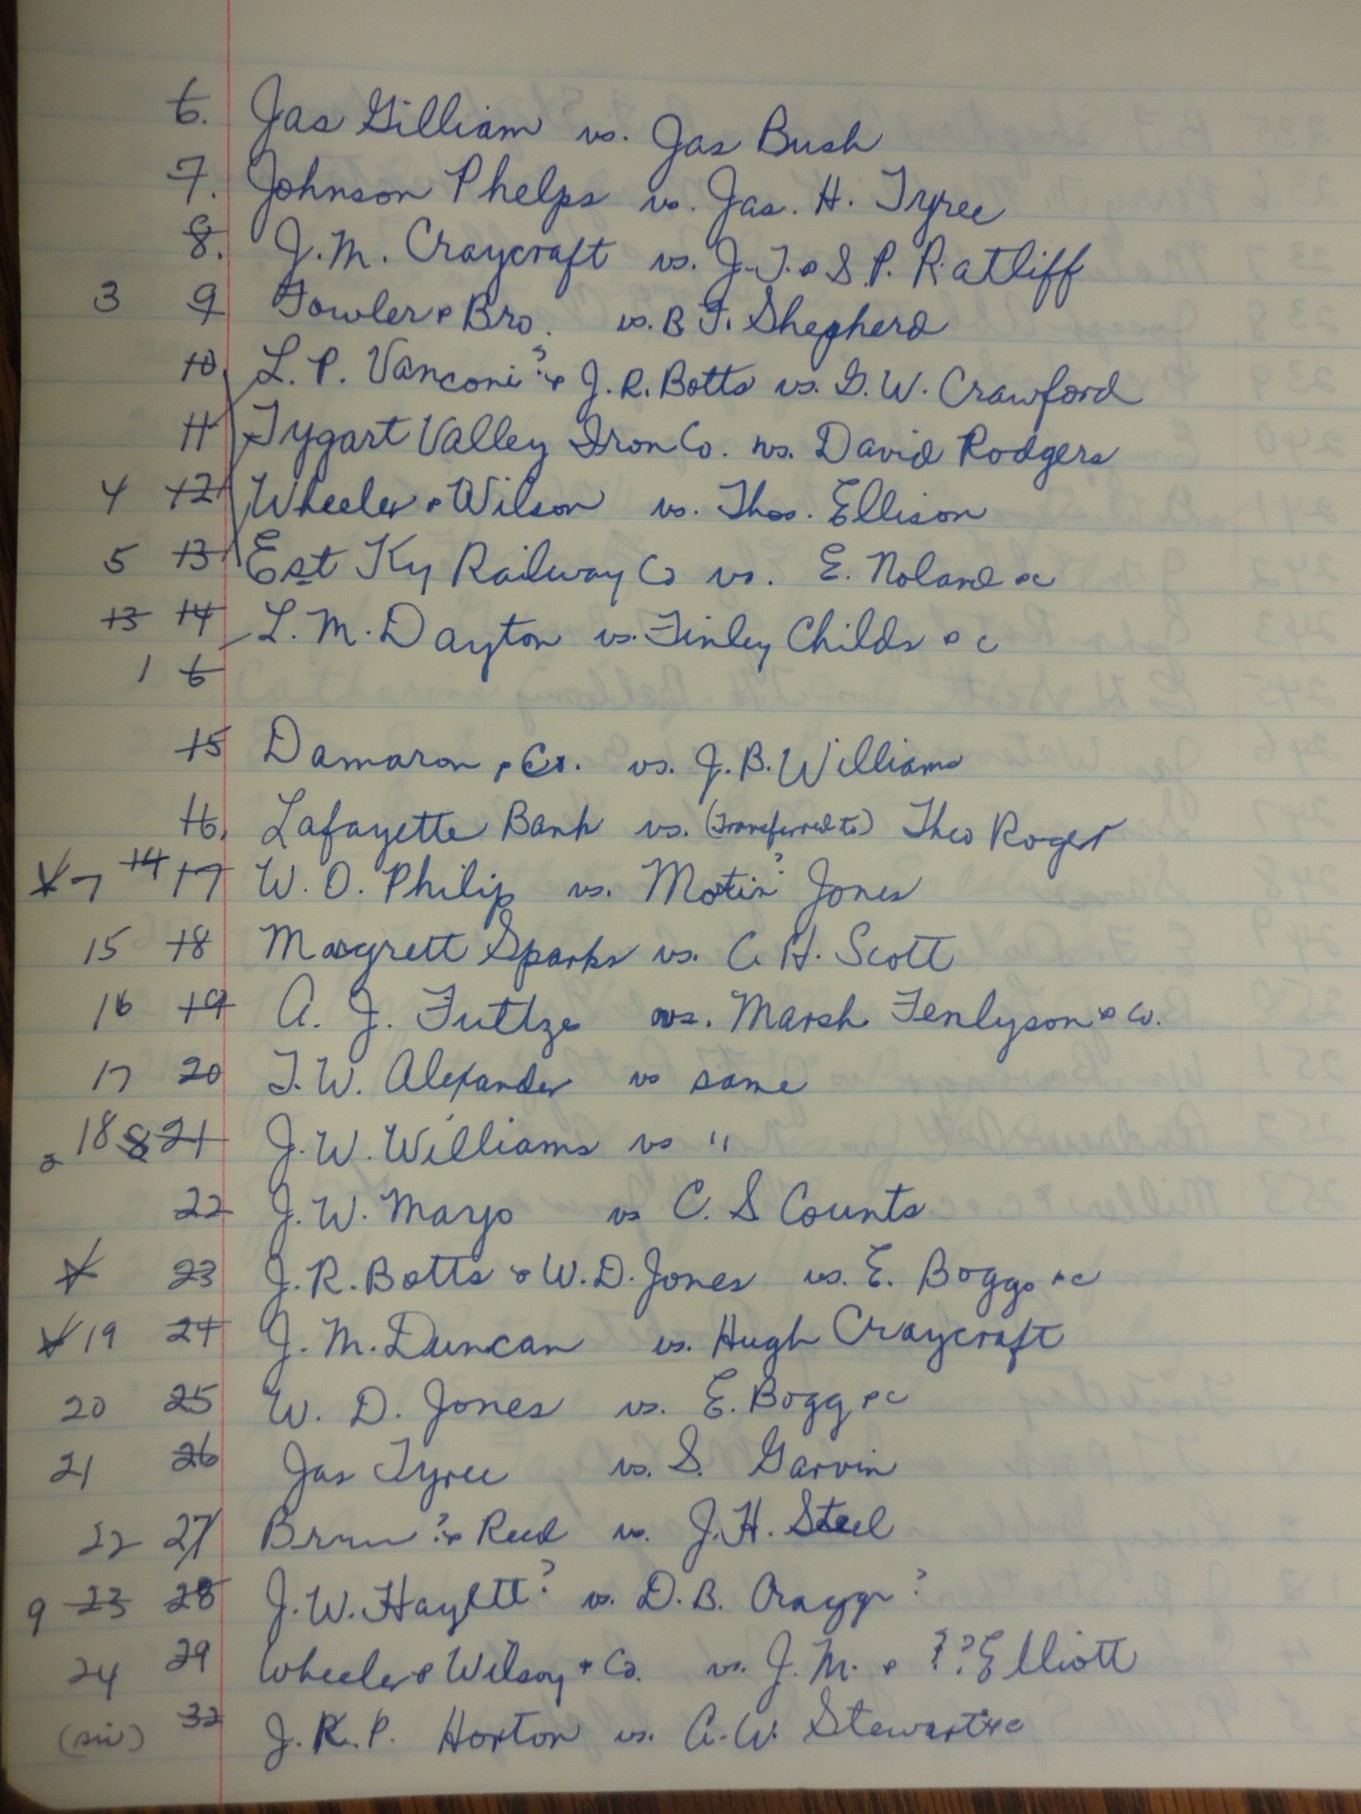 6. Jas Gilliam vs. Jas Bush
7. Johnson Phelps vs. Jas. H. Tyree
8. J. M. Craycraft vs. J. T. & S. P. Ratliff
3 9 Fowler & Bro. vs. B F. Shepherd
10. L. P. Vanconi? & J. R. Botts vs. G. W. Crawford
11 Tygart Valley Iron Co. vs. David Rodgers
4 12 Wheeler & Wilson vs. Thos. Ellison
5 13 Est Ky Railway Co vs. E. Noland &c
13 14 L. M. Dayton vs. Finley Childs &c
1 6
15 Damaron & Co. vs. J. B. Williams
16. Lafayette Bank vs. (Transferred to) Theo Roger
7 14 17 W. O. Philip vs. Motin? Jones
15 18 Margrett Sparks vs. C. H. Scott
16 19 A. J. Fultze vs. Marsh Fenlyson & Co.
17 20 T. W. Alexander vs same
2 18 8 21 J. W. Williams vs "
22 J. W. Mayo vs C. S Counts
23 J. R. Botts & W. D. Jones vs. E. Boggs &c
19 24 J. M. Duncan vs. Hugh Craycraft
20 25 W. D. Jones vs. E. Bogg &c
21 26 Jas Tyree vs. S. Garvin
22 27 Brown? & Reed vs. J. H. Steel
9 23 28 J. W. Hayltt? vs. D. B. ?
24 29 Wheeler & Wilsoy & Co. vs. J. M. & ?? Elliott
(sic) 32 J. R. P. Horton vs. A. W. Stewart &c